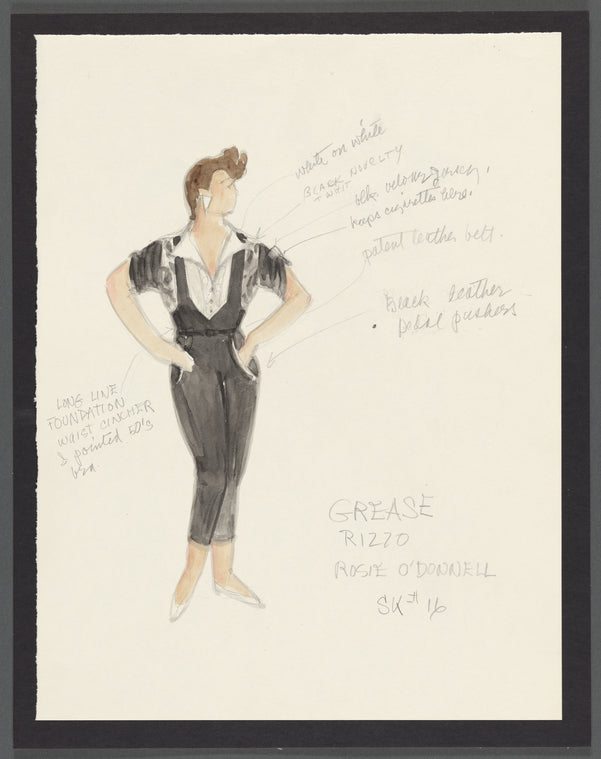 white on white
BLACK NOVELTY
KNIT
blk. velour
keeps cigarettes here.
patent leather belt.
Black leather
pedal pushers
LONG LINE
FOUNDATION
WAIST CINCHER
& pointed 50's
bra.
GREASE
RIZZO
ROSIE O'DONNELL
SK# 16